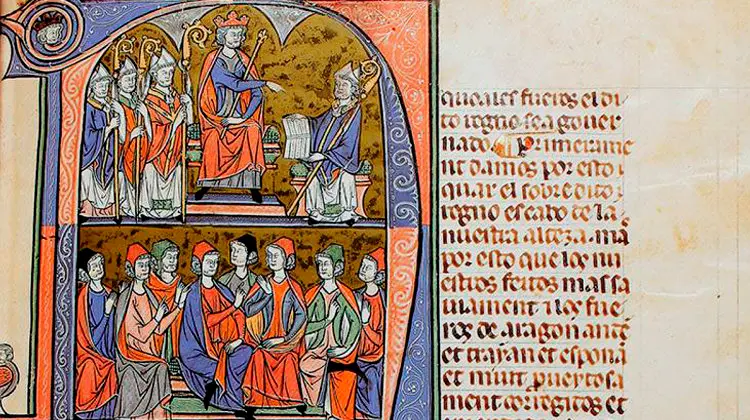 queales fueros el di
to regno sea gouer
nado. primerame
nt damos por esto i
quar el sobre dito i
regno es cabo de la
nuestra alteza. ma
por esto que los nu
estros feitos mas sa
uiament i los fue
ros de aragon ante
et trayan et espona
et mult proueytosa
ment corregitos et